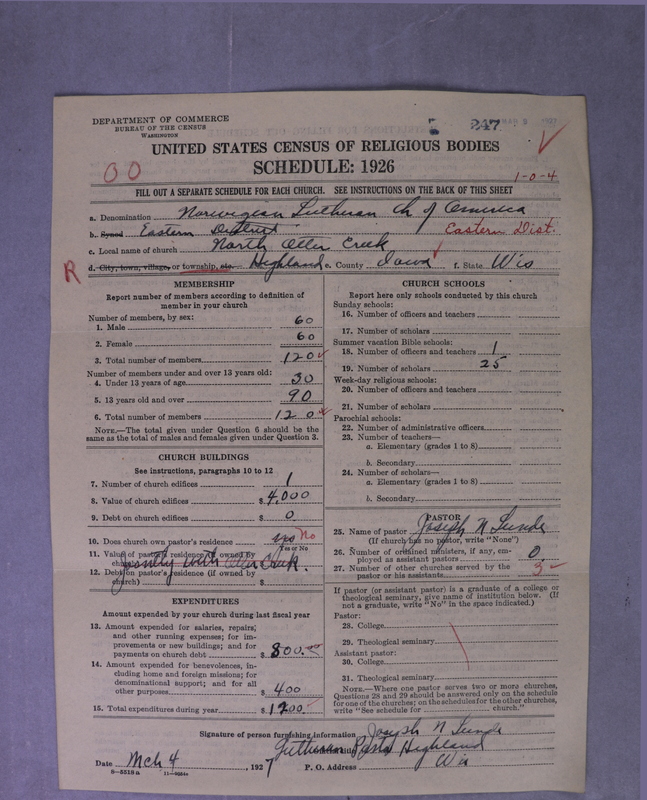 DEPARTMENT OF COMMERCE
BUREAU OF THE CENSUS
WASHINGTON
247
UNITED STATES CENSUS OF RELIGIOUS BODIES
SCHEDULE: 1926
OO
1-0-4
FILL OUT A SEPARATE SCHEDULE FOR EACH CHURCH. SEE INSTRUCTIONS ON THE BACK OF THIS SHEET
a. Denomination Norwegian Lutheran Ch of America
b. Synod Eastern District Eastern Dist.
c. Local name of church North Otter Creek
R d. City, town, village, or township, etc. Highland e. County Iowa f. State Wis
MEMBERSHIP
Report number of members according to definition of
member in your church
Number of members, by sex:
1. Male 60
2. Female 60
3. Total number of members 120
Number of members under and over 13 years old:
4. Under 13 years of age 30
5. 13 years old and over 90
6. Total number of members 120
NOTE.—The total given under Question 6 should be the
same as the total of males and females given under Question 3.
CHURCH BUILDINGS
See instructions, paragraphs 10 to 12
7. Number of church edifices 1
8. Value of church edifices $ 4,000
9. Debt on church edifices $ 0
10. Does church own pastor's residence yes No
Yes or No
11. Value of pastor's residence (if owned by
church)
jointly with Otter Creek.
12. Debt on pastor's residence (if owned by
church) $
EXPENDITURES
Amount expended by your church during last fiscal year
13. Amount expended for salaries, repairs,
and other running expenses; for im-
provements or new buildings; and for
payments on church debt $ 800.
14. Amount expended for benevolences, in-
cluding home and foreign missions; for
denominational support; and for all
other purposes $ 400
15. Total expenditures during year $ 1200.
CHURCH SCHOOLS
Report here only schools conducted by this church
Sunday schools:
16. Number of officers and teachers
17. Number of scholars
Summer vacation Bible schools:
18. Number of officers and teachers 1
19. Number of scholars 25
Week-day religious schools:
20. Number of officers and teachers
21. Number of scholars
Parochial schools:
22. Number of administrative officers
23. Number of teachers—
a. Elementary (grades 1 to 8)
b. Secondary
24. Number of scholars—
a. Elementary (grades 1 to 8)
b. Secondary
PASTOR
25. Name of pastor Joseph N Lunde
(If church has no pastor, write "None")
26. Number of ordained ministers, if any, em-
ployed as assistant pastors 0
27. Number of other churches served by the
pastor or his assistants 3
If pastor (or assistant pastor) is a graduate of a college or
theological seminary, give name of institution below. (If
not a graduate, write "No" in the space indicated.)
Pastor:
28. College
29. Theological seminary
Assistant pastor:
30. College
31. Theological seminary
NOTE.—Where one pastor serves two or more churches,
Questions 28 and 29 should be answered only on the schedule
for one of the churches; on the schedules for the other churches,
write "See schedule for church."
Signature of person furnishing information Joseph N Lunde
Lutheran Pastor Highland
Date Mch 4, 1927 P. O. Address Wis
8-5518a 11-9034